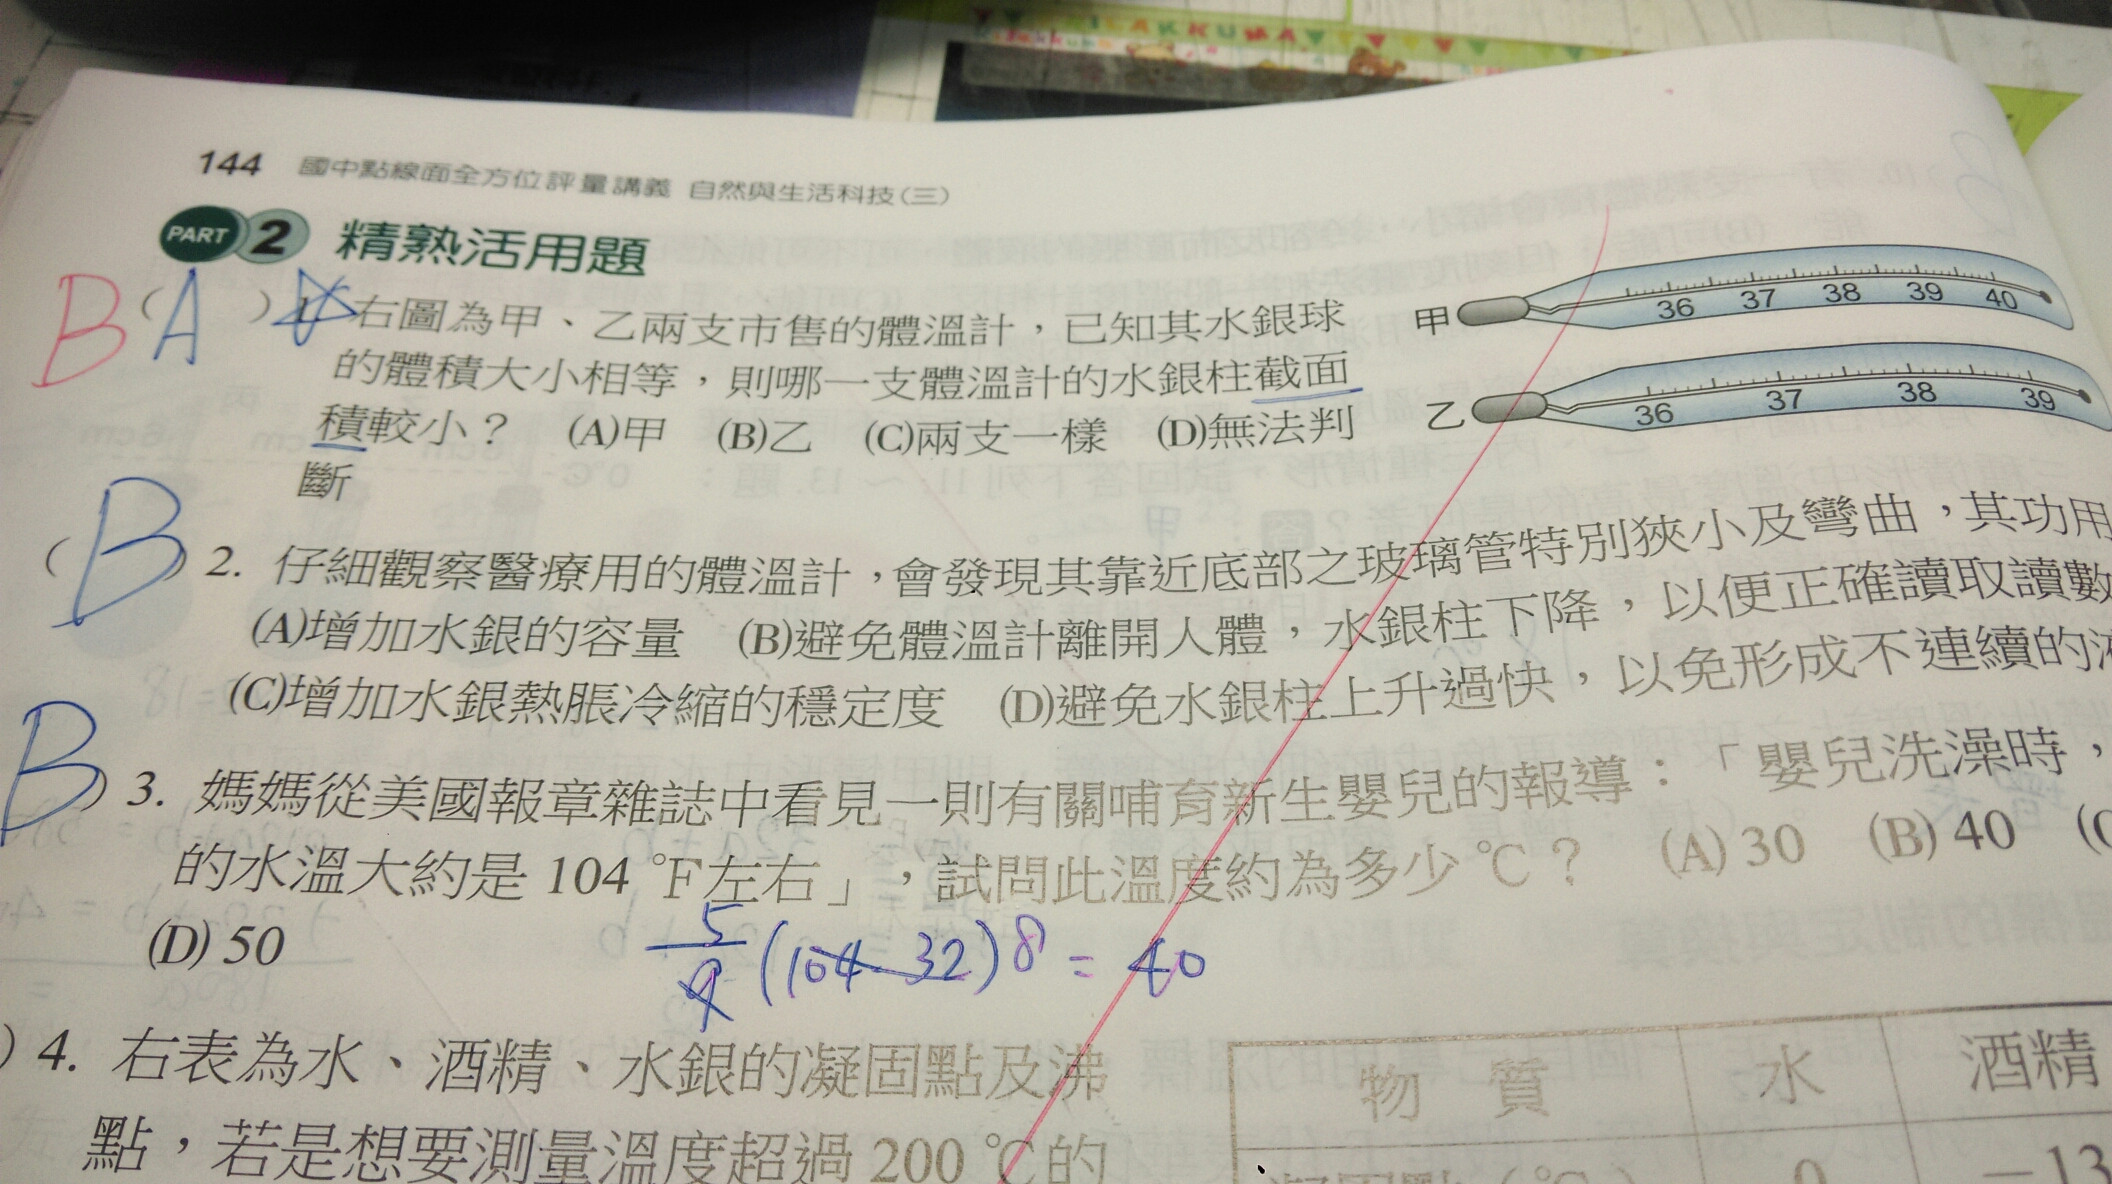 RILAKKUMA
144 國中點線面全方位評量講義 自然與生活科技(三)
PART 2 精熟活用題
B ( A ) 1. 右圖為甲、乙兩支市售的體溫計，已知其水銀球
的體積大小相等，則哪一支體溫計的水銀柱截面
積較小？ (A)甲 (B)乙 (C)兩支一樣 (D)無法判
斷
甲 36 37 38 39 40
乙 36 37 38 39
( B ) 2. 仔細觀察醫療用的體溫計，會發現其靠近底部之玻璃管特別狹小及彎曲，其功用
(A)增加水銀的容量 (B)避免體溫計離開人體，水銀柱下降，以便正確讀取讀數
(C)增加水銀熱脹冷縮的穩定度 (D)避免水銀柱上升過快，以免形成不連續的
B ) 3. 媽媽從美國報章雜誌中看見一則有關哺育新生嬰兒的報導：「嬰兒洗澡時，
的水溫大約是 104 ℉左右」，試問此溫度約為多少 ℃？ (A) 30 (B) 40 (C
(D) 50
5/9 (104-32) 8 = 40
) 4. 右表為水、酒精、水銀的凝固點及沸
點，若是想要測量溫度超過 200 ℃的
物 質 水 酒精
凝固點 (℃) 0 −13